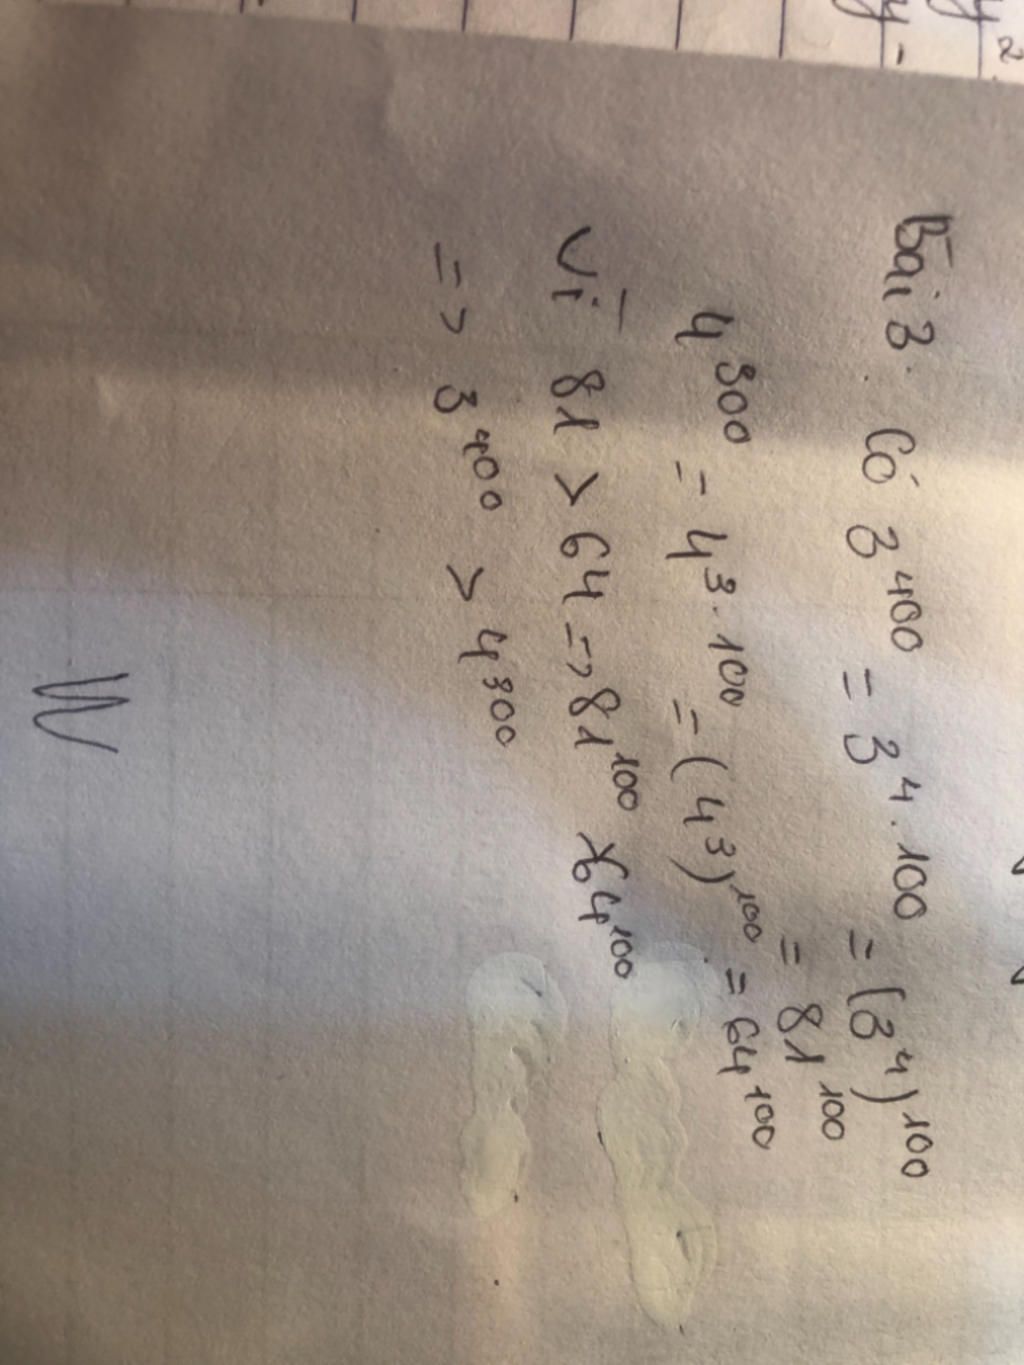 Bài 3. Có 3⁴⁰⁰ = 3⁴·¹⁰⁰ = (3⁴)¹⁰⁰
= 81¹⁰⁰
4³⁰⁰ = 4³·¹⁰⁰ = (4³)¹⁰⁰ = 64¹⁰⁰
Vì 81 > 64 => 81¹⁰⁰ > 64¹⁰⁰
=> 3⁴⁰⁰ > 4³⁰⁰